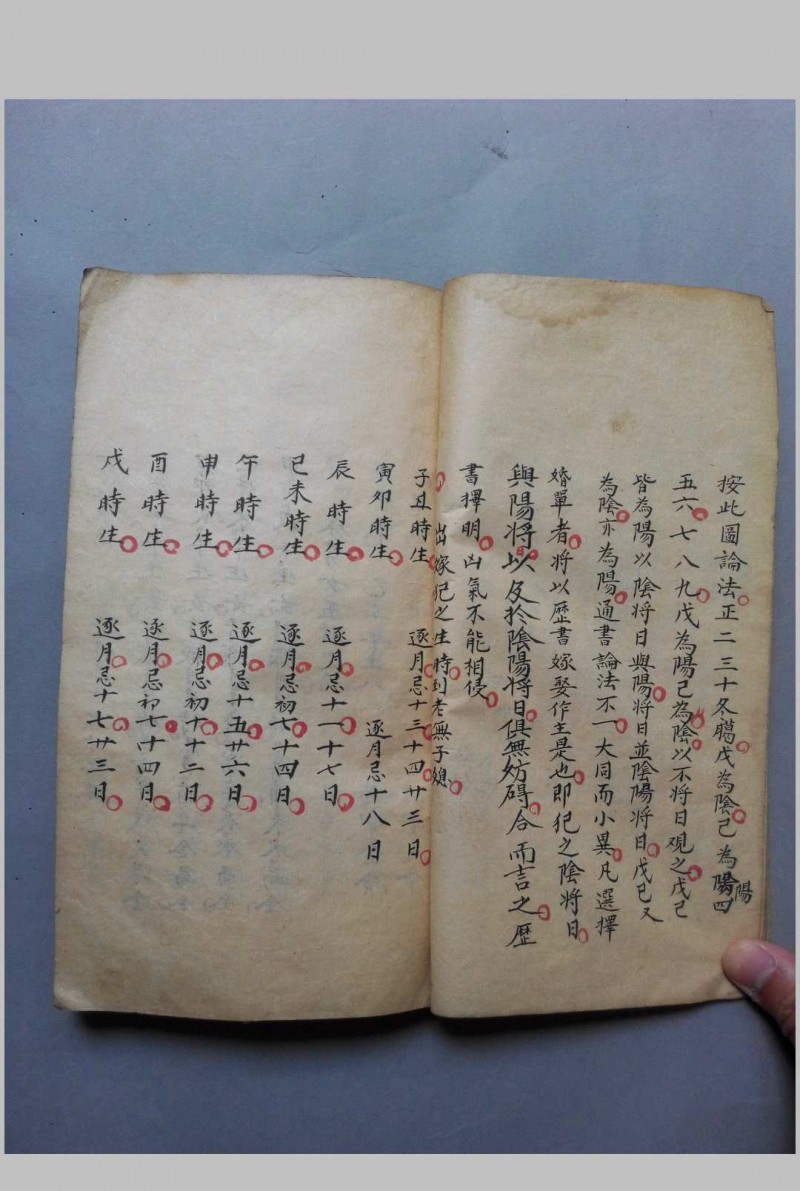 按此圖論法正二三十冬臈戊為陰己為陽四
陽
五六七八九戊為陽己為陰以不將日覌之戊己
皆為陽以陰將日與陽將日並陰陽將日戊己又
為陰亦為陽通書論法不一大同而小異凡選擇
婚單者將以歷書嫁娶作主是也即犯之陰將日
與陽將以及於陰陽將日俱無妨碍合而言之歷
書擇明凶氣不能相侵
出嫁犯之生時到老無子媳
子丑時生 逐月忌十三十四廿三日
寅卯時生 逐月忌十八日
辰時生 逐月忌十一十七日
巳未時生 逐月忌初七十四日
午時生 逐月忌十五廿六日
申時生 逐月忌初十十二日
酉時生 逐月忌初七十四日
戌時生 逐月忌十七廿三日